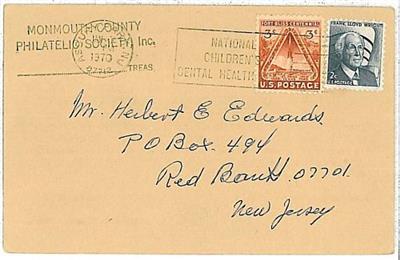 MONMOUTH COUNTY
PHILATELIC SOCIETY, Inc.
TREAS.
1970
NATIONAL
CHILDREN'S
DENTAL HEALTH
FORT BLISS CENTENNIAL
3¢ 3¢
U.S. POSTAGE
FRANK LLOYD WRIGHT
2¢
U.S. POSTAGE
Mr. Herbert E Edwards
P O Box 494
Red Bank 07701
New Jersey